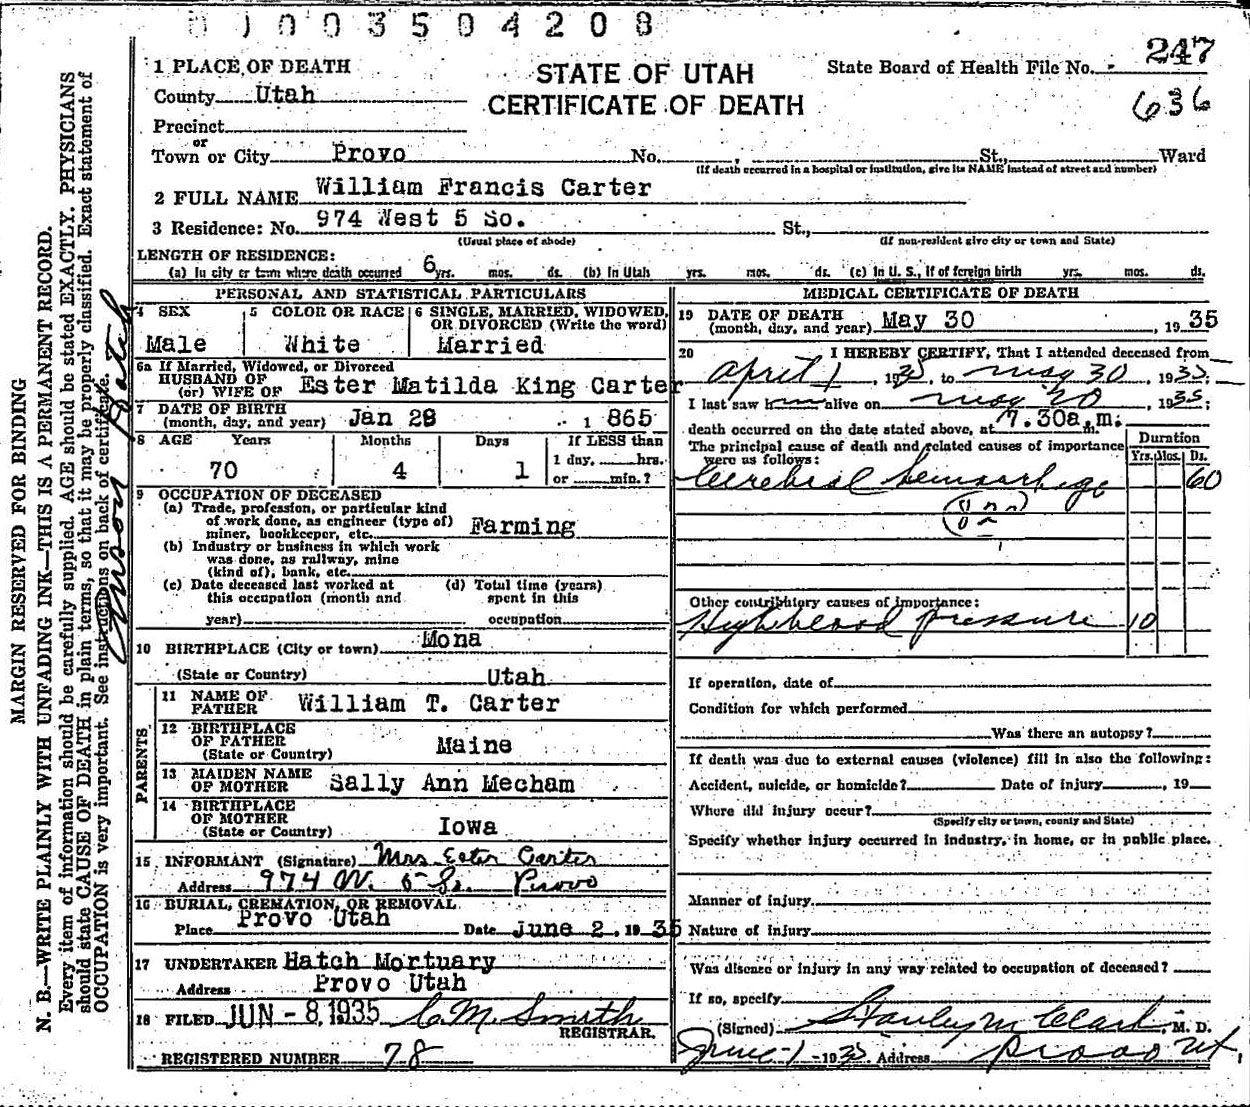 0 J 0 0 3 5 0 4 2 0 8
MARGIN RESERVED FOR BINDING
N. B.—WRITE PLAINLY WITH UNFADING INK—THIS IS A PERMANENT RECORD.
Every item of information should be carefully supplied. AGE should be stated EXACTLY. PHYSICIANS
should state CAUSE OF DEATH in plain terms, so that it may be properly classified. Exact statement of
OCCUPATION is very important. See instructions on back of certificate.
STATE OF UTAH
CERTIFICATE OF DEATH
State Board of Health File No. 247
636
1 PLACE OF DEATH
County Utah
Precinct
or
Town or City Provo No. , St., Ward
(If death occurred in a hospital or institution, give its NAME instead of street and number)
2 FULL NAME William Francis Carter
3 Residence: No. 974 West 5 So. St.,
(Usual place of abode) (If non-resident give city or town and State)
LENGTH OF RESIDENCE:
(a) In city or town where death occurred 6 yrs. mos. ds. (b) In Utah yrs. mos. ds. (c) In U. S., if of foreign birth yrs. mos. ds.
PERSONAL AND STATISTICAL PARTICULARS
4 SEX
Male
5 COLOR OR RACE
White
6 SINGLE, MARRIED, WIDOWED, OR DIVORCED (Write the word)
Married
6a If Married, Widowed, or Divorced
HUSBAND OF
(or) WIFE OF Ester Matilda King Carter
7 DATE OF BIRTH
(month, day, and year) Jan 29 1865
8 AGE Years Months Days If LESS than
1 day, hrs.
70 4 1 or min.?
9 OCCUPATION OF DECEASED
(a) Trade, profession, or particular kind
of work done, as engineer (type of)
miner, bookkeeper, etc. Farming
(b) Industry or business in which work
was done, as railway, mine
(kind of); bank, etc.
(c) Date deceased last worked at (d) Total time (years)
this occupation (month and spent in this
year) occupation
10 BIRTHPLACE (City or town) Mona
(State or Country) Utah
PARENTS
11 NAME OF
FATHER William T. Carter
12 BIRTHPLACE
OF FATHER Maine
(State or Country)
13 MAIDEN NAME
OF MOTHER Sally Ann Mecham
14 BIRTHPLACE
OF MOTHER
(State or Country) Iowa
15 INFORMANT (Signature) Mrs Ester Carter
Address 974 W. 5 So. Provo
16 BURIAL, CREMATION, OR REMOVAL
Place Provo Utah Date June 2, 1935
17 UNDERTAKER Hatch Mortuary
Address Provo Utah
18 FILED JUN - 8, 1935 C. M. Smith
REGISTRAR.
REGISTERED NUMBER 78
MEDICAL CERTIFICATE OF DEATH
19 DATE OF DEATH
(month, day, and year) May 30, 1935
20 I HEREBY CERTIFY, That I attended deceased from
April 1, 1935, to may 30, 1935;
I last saw him alive on may 20, 1935;
death occurred on the date stated above, at 7.30a.m.
The principal cause of death and related causes of importance
were as follows:
Duration
Yrs. Mos. Ds.
Cerebral hemorrhage 60
Other contributory causes of importance:
High blood pressure 10
If operation, date of
Condition for which performed
Was there an autopsy?
If death was due to external causes (violence) fill in also the following:
Accident, suicide, or homicide? Date of injury , 19
Where did injury occur?
(Specify city or town, county and State)
Specify whether injury occurred in industry, in home, or in public place.
Manner of injury
Nature of injury
Was disease or injury in any way related to occupation of deceased?
If so, specify
(Signed) Stanley M Clark, M. D.
June 1 - 1935 Address Provo Ut,